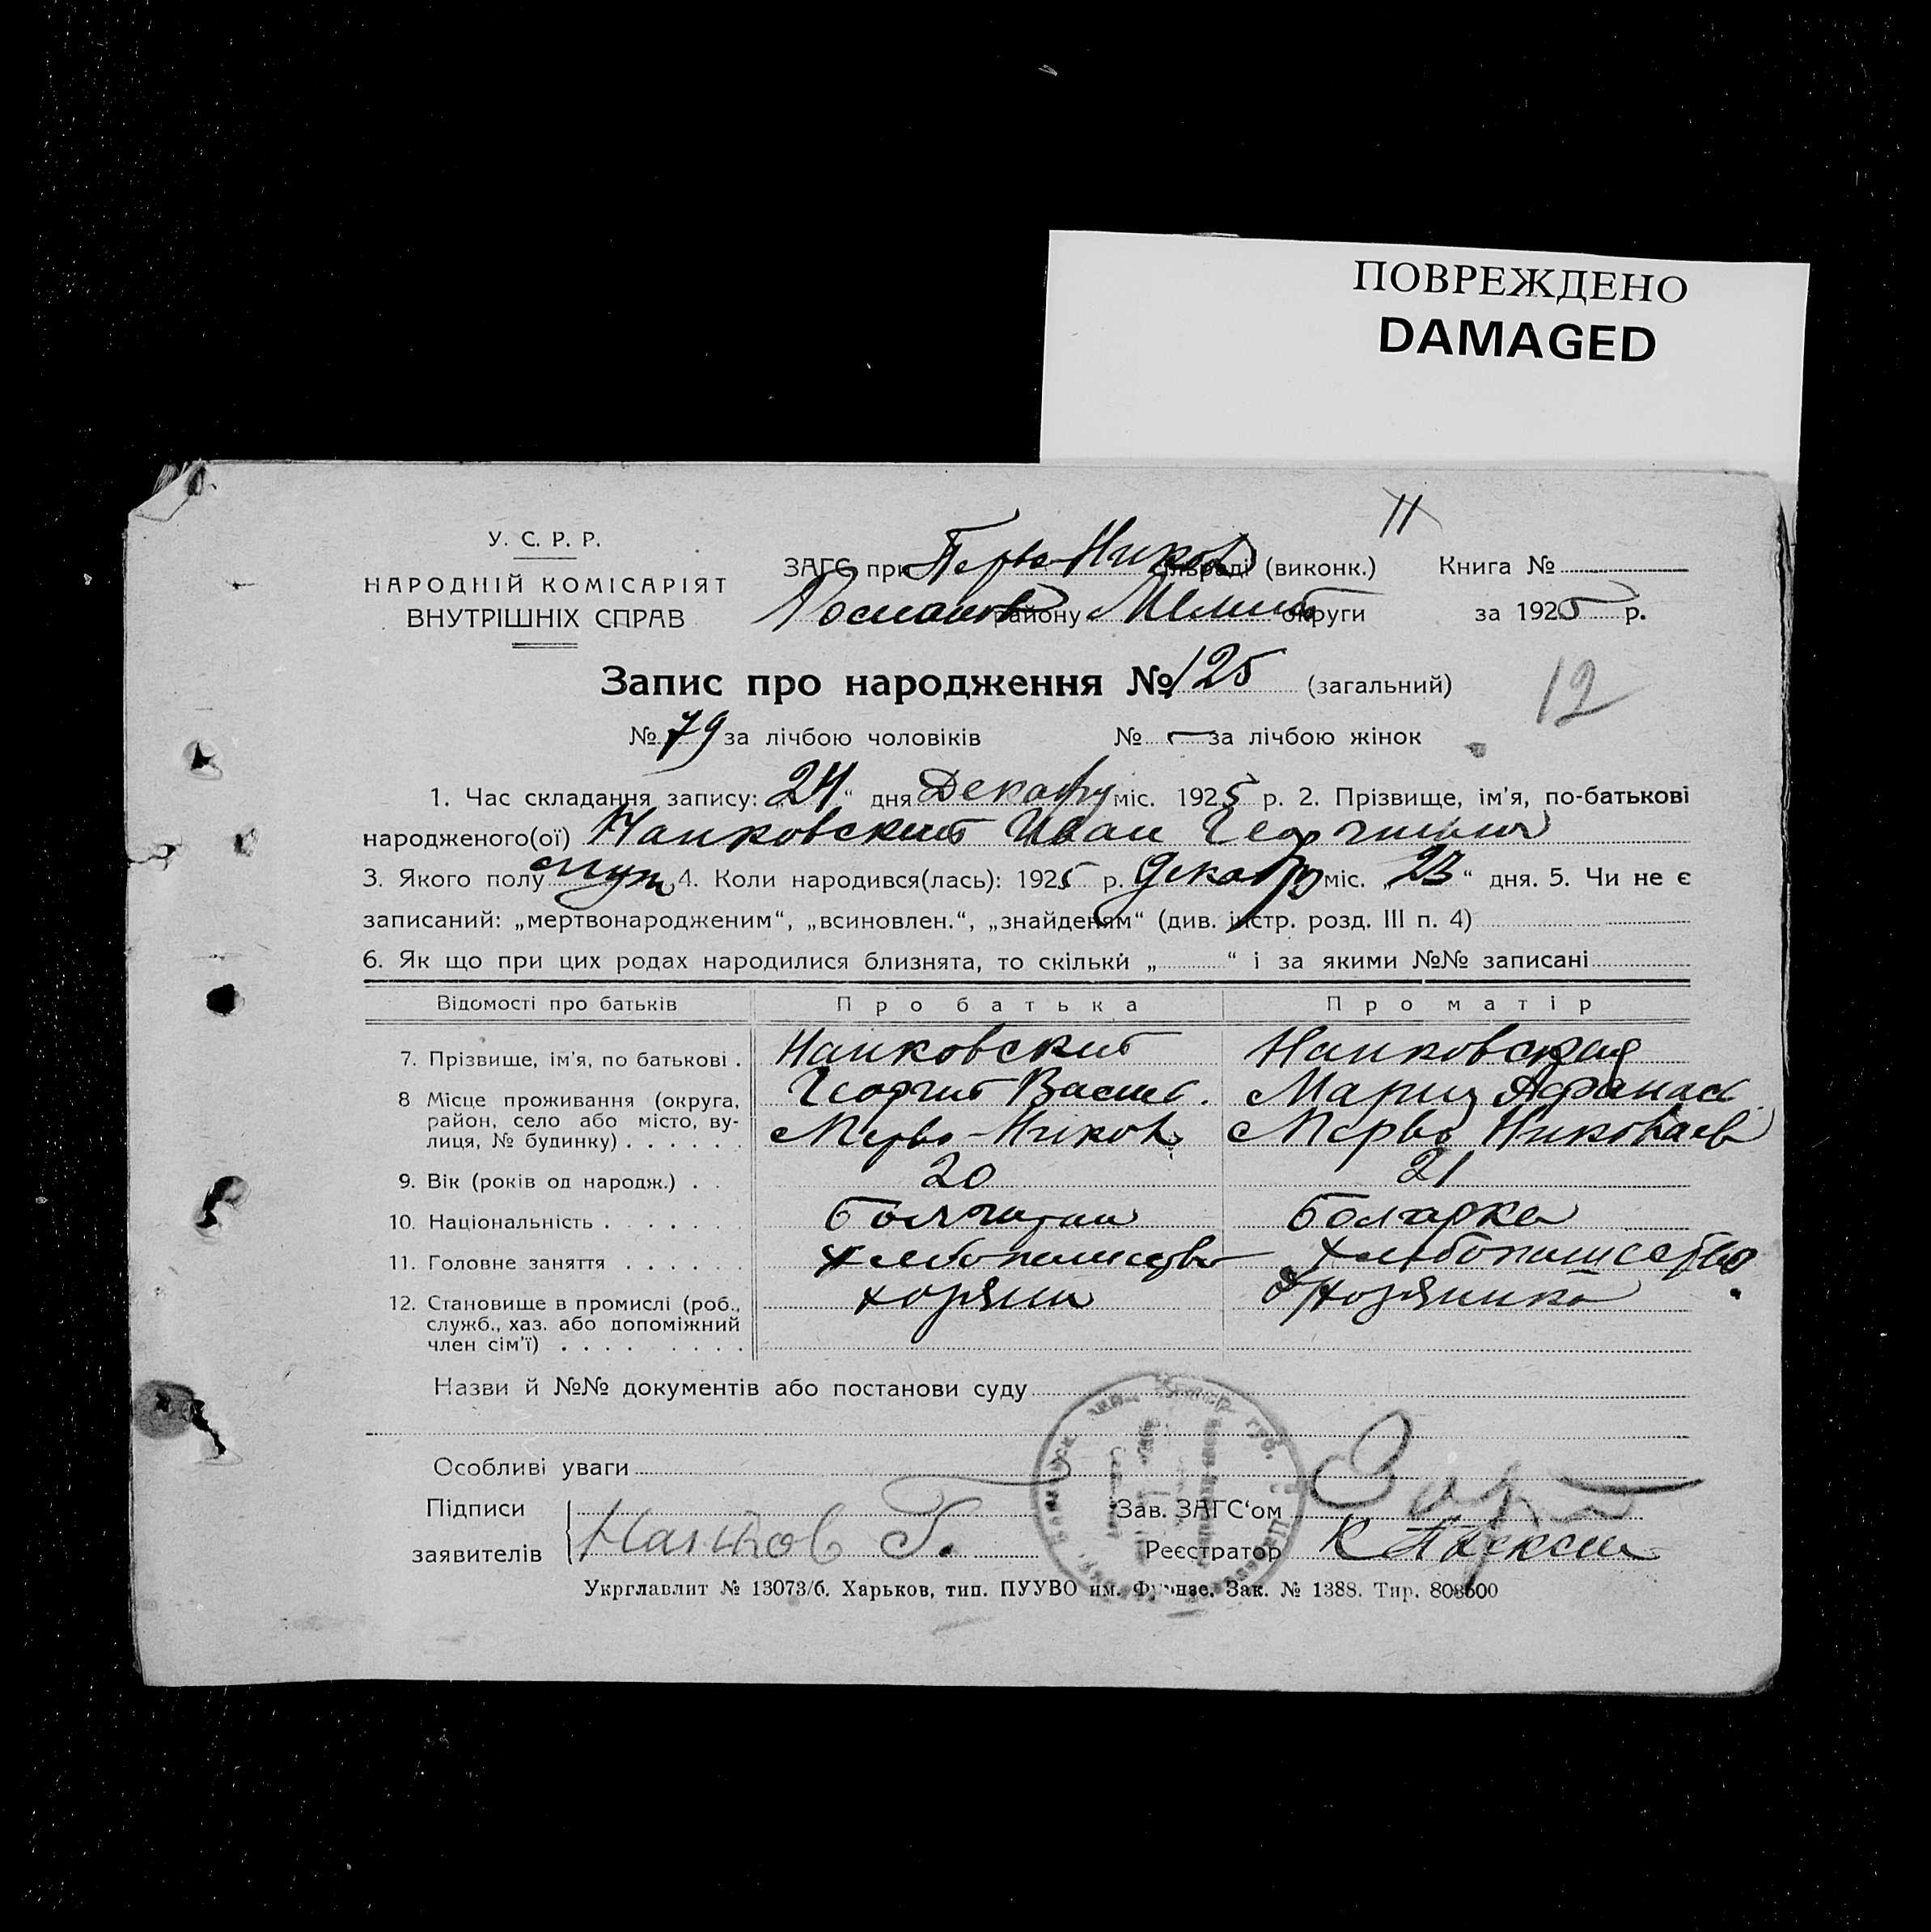 ПОВРЕЖДЕНО
DAMAGED
11
У. С. Р. Р.
НАРОДНІЙ КОМІСАРІЯТ
ВНУТРІШНІХ СПРАВ
ЗАГС при Перво-Никол (виконк.)
району Мелит округи
Книга №
за 1925 р.
Запис про народження № 125 (загальний)
12
№ 79 за лічбою чоловіків № — за лічбою жінок
1. Час складання запису: „24“ дня Декабря міс. 1925 р. 2. Прізвище, ім'я, по-батькові
народженого(ої) Нанковский Иван Георгиевич
3. Якого полу муж 4. Коли народився(лась): 1925 р. декабря міс. „23“ дня. 5. Чи не є
записаний: „мертвонародженим“, „всиновлен.“, „знайденям“ (див. інстр. розд. III п. 4)
6. Як що при цих родах народилися близнята, то скільки „ “ і за якими №№ записані
Відомості про батьків Про батька Про матір
7. Прізвище, ім'я, по батькові . Нанковский Нанковская
Георгий Васил. Мария Афанас
8 Місце проживання (округа, район, село або місто, вулиця, № будинку) . . . . . . Перво-Никол. Перво Николаев
9. Вік (років од народж.) . . 20 21
10. Національність . . . . . . Болгарин Болгарка
11. Головне заняття . . . . . . хлебопашество хлебопашество
12. Становище в промислі (роб., служб., хаз. або допоміжний член сім'ї) . . . . . . . . хозяин хозяинка
Назви й №№ документів або постанови суду
Особливі уваги
Підписи
заявителів Нанков Г.
Зав. ЗАГС'ом
Реєстратор
Укрглавлит № 13073/б. Харьков, тип. ПУУВО им. Фрунзе. Зак. № 1388. Тир. 808600